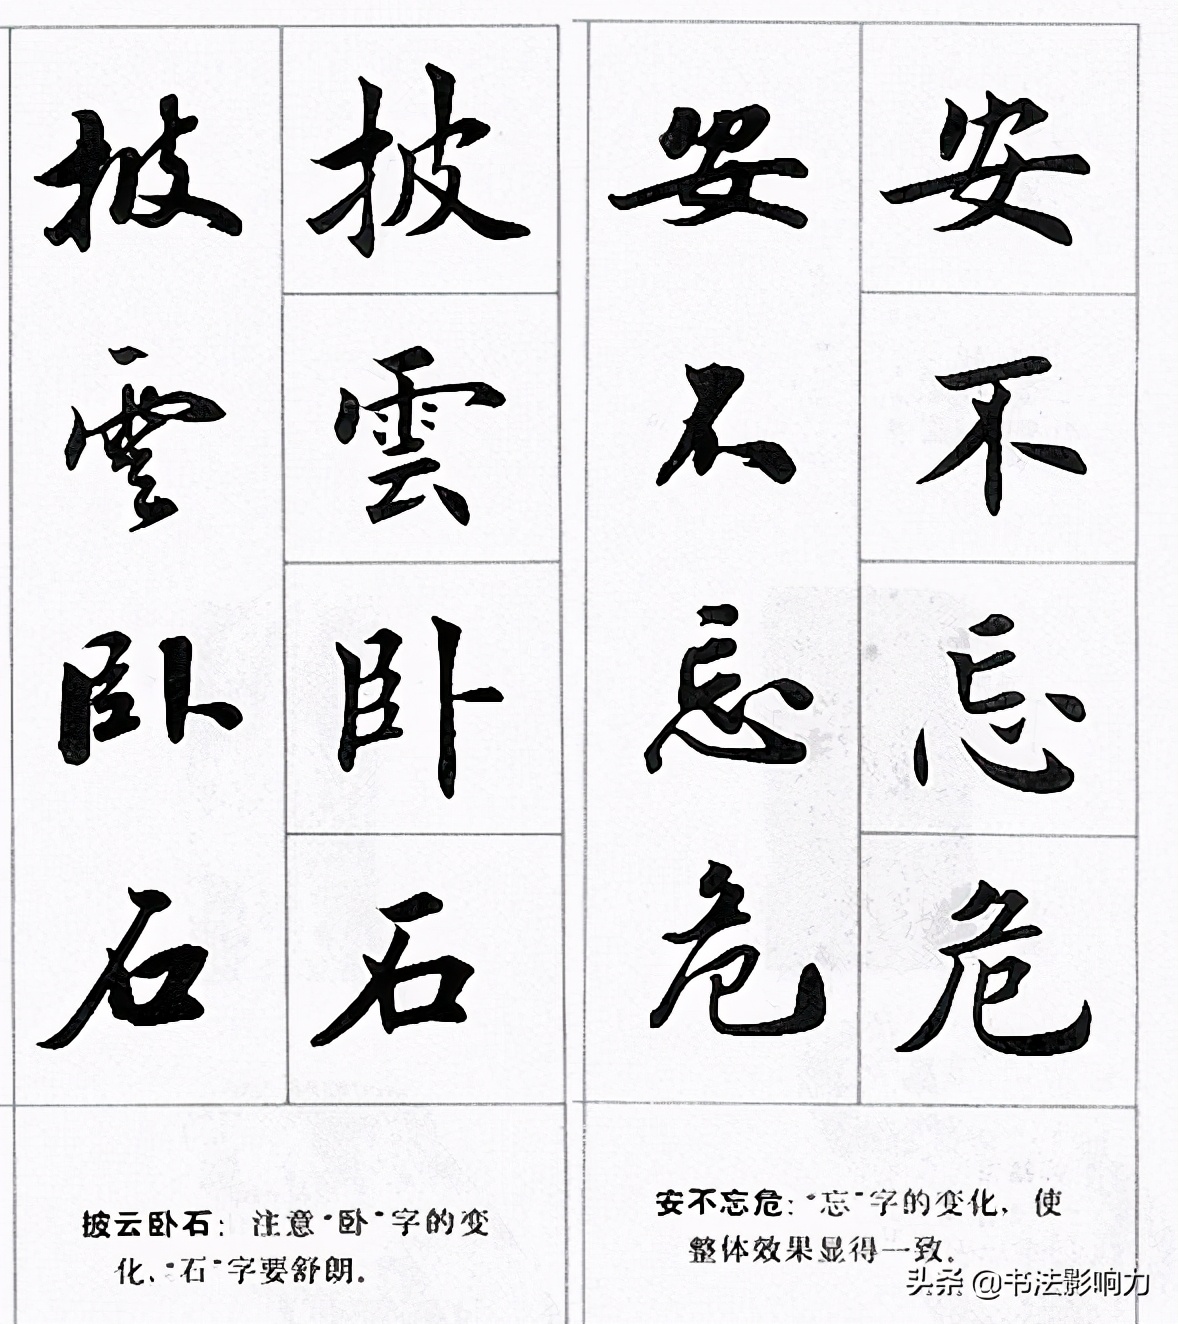 安不忘危
安不忘危
披雲卧石
披雲卧石
安不忘危：“忘”字的变化，使
整体效果显得一致。
披云卧石：注意“卧”字的变
化、“石”字要舒朗。
头条 @书法影响力